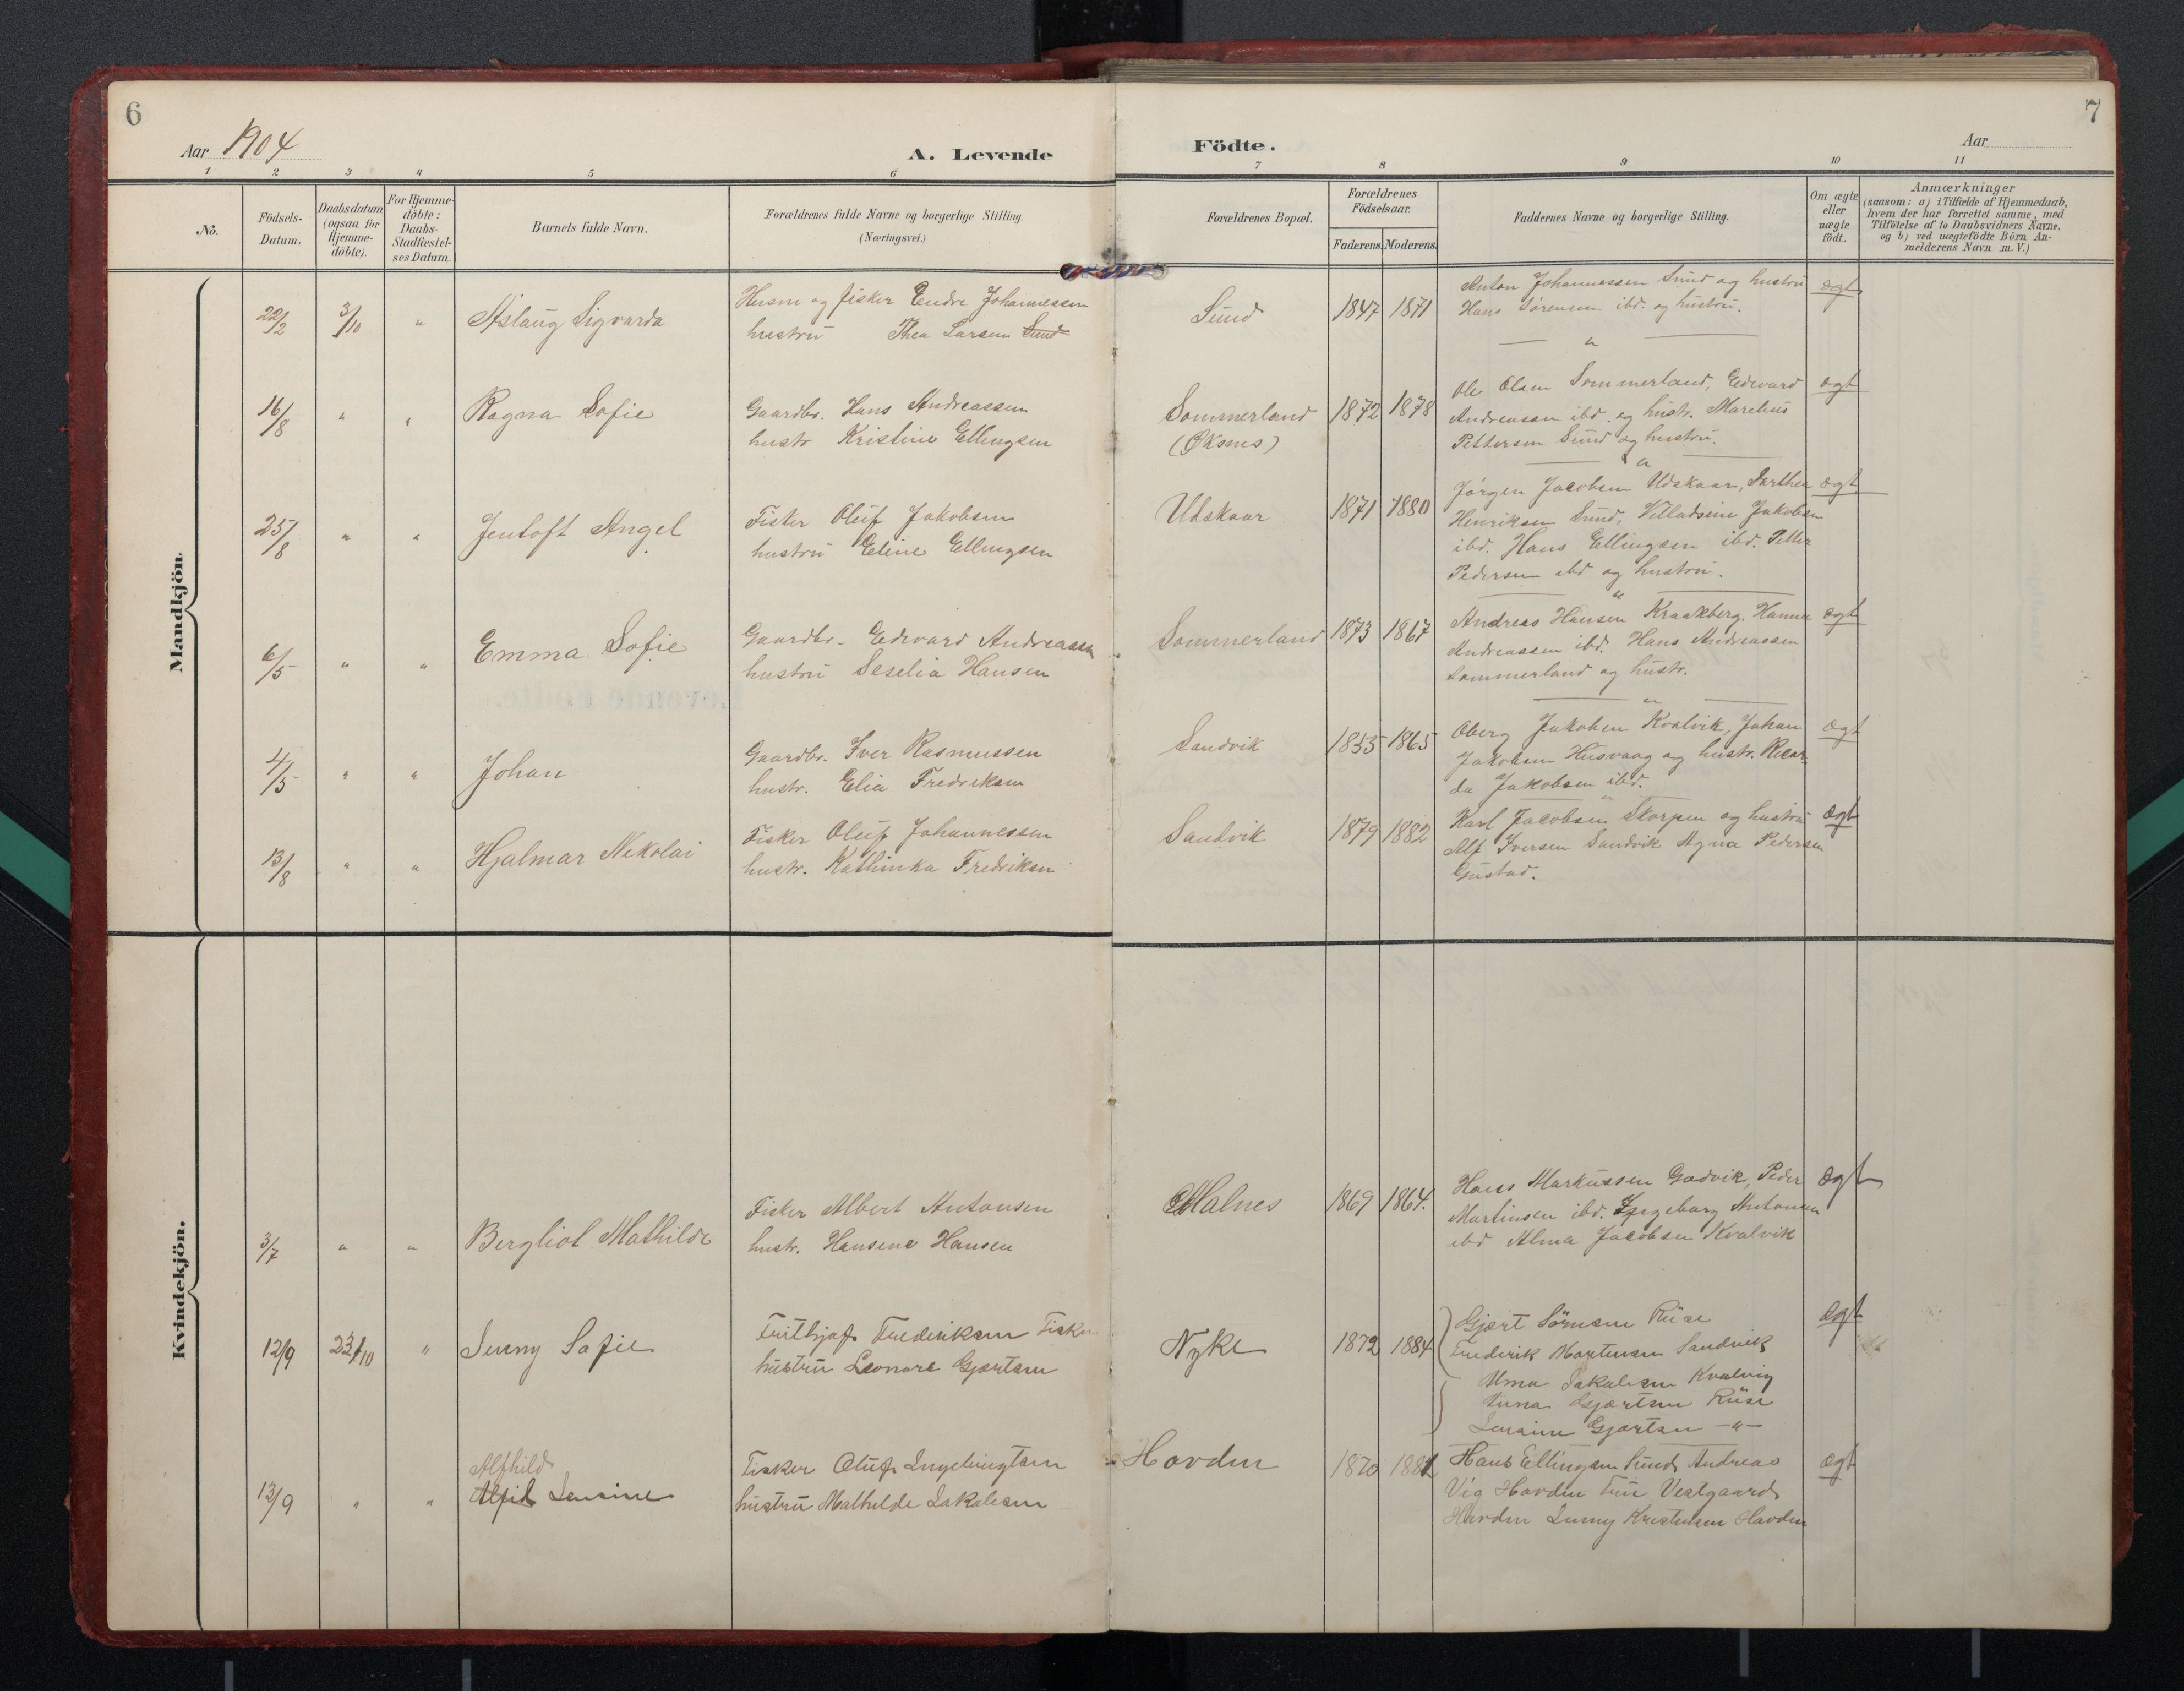 6
Aar 1904
A. Levende
1 2 3 4 5 6
No.
Födsels-
Datum.
Daabsdatum
(ogsaa for
Hjemme-
döbte).
For Hjemme-
döbte:
Daabs-
Stadfæstel-
ses Datum.
Barnets fulde Navn.
Forældrenes fulde Navne og borgerlige Stilling.
(Næringsvei.)
Mandkjön.
22/2 3/10 " Aslaug Sigvarda
Husm og fisker Endre Johannessen
hustru Thea Larsen Sund
16/8 " " Ragna Sofie
Gaardbr. Hans Andreassen
hustr Kristine Ellingsen
25/8 " " Jentoft Angel
Fisker Oluf Jakobsen
hustru Eline Ellingsen
6/5 " " Emma Sofie
Gaardbr. Edevard Andreassen
hustru Seselia Hansen
4/5 " " Johan
Gaardbr. Iver Rasmussen
hustr. Elia Fredriksen
13/8 " " Hjalmar Nikolai
Fisker Oluf Johannessen
hustr. Kathinka Fredriksen
Kvindekjön.
3/7 " " Bergliot Mathilde
Fisker Albert Antonsen
hustr. Hansene Hansen
12/9 23/10 " Jenny Sofie
Frithjof Frederiksen Fisker
hustru Leonore Gjærtsen
13/9 " "
Alfhild
Alfild Jensine
Fisker Oluf Ingebrigtsen
hustru Mathilde Jakobsen
7
Födte.
Aar
7 8 9 10 11
Forældrenes Bopæl.
Forældrenes
Födselsaar.
Faderens. Moderens.
Faddernes Navne og borgerlige Stilling.
Om ægte
eller
uægte
födt.
Anmærkninger
(saasom: a) i Tilfælde af Hjemmedaab,
hvem der har forrettet samme, med
Tilföielse af to Daabsvidners Navne,
og b) ved uægtefödte Börn An-
melderens Navn m. V.)
Sund 1847 1871
Anton Johannessen Sund og hustru ægt
Hans Sörensen ibd. og hustru.
— " —
Sommerland
(Öksnes)
1872 1878
Ole Olsen Sommerland, Edevard ægt
Andreassen ibd. og hustr. Marelius
Pettersen Sund og hustru.
— " —
Udskaar 1871 1880
Jörgen Jacobsen Udskaar, Darthea ægt
Henriksen Sund, Villadsine Jakobsen
ibd. Hans Ellingsen ibd. Petter
Pedersen ibd og hustru.
— " —
Sommerland 1873 1867
Andreas Hansen Kraakberg. Hanna ægt
Andreassen ibd. Hans Andreassen
Sommerland og hustr.
— " —
Sandvik 1855 1865
Oberg Jakobsen Kvalvik, Johan ægt
Jakobsen Husvaag og hustr. Rikar-
da Jakobsen ibd.
— " —
Sandvik 1879 1882
Karl Jacobsen Skorpen og hustru ægt
Alf Iversen Sandvik Agna Pedersen
Gustad.
Malnes 1869 1864.
Hans Markussen Gadvik, Peder ægt
Martinsen ibd. Ingeborg Antonsen
ibd Alma Jacobsen Kvalvik
Nyke 1872 1884
Gjært Sörensen Rise ægt
Frederik Mortensen Sandvik
Alma Jakobsen Kvalvig
Anna Gjærtsen Rise
Jensine Gjærtsen — " —
Hovden 1870 1882
Hans Ellingsen Sund Andreas ægt
Vig Hovden Vestgaard
Hovden Jenny Kristensen Hovden